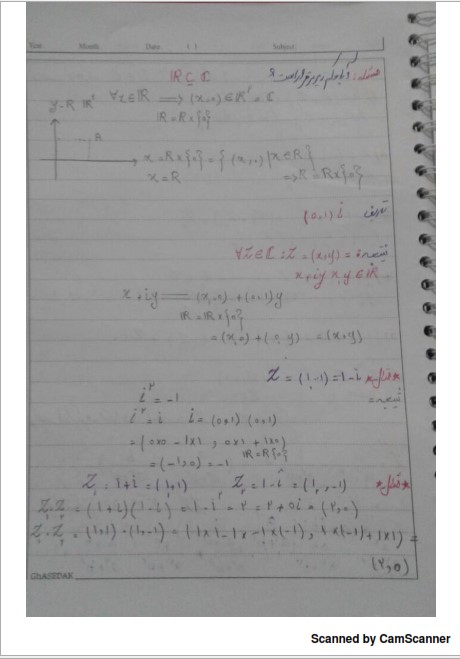 Year Month. Date. ( ) Subject:
مسئله:
ℝ ⊆ ℂ
y=ℝ ℝ² ∀x∈ℝ ⟹ (x,0) ∈ ℝ² = ℂ
ℝ = ℝ×{0}
ℝ
x = ℝ×{0} = { (x,0) | x∈ℝ }
x = ℝ ⟹ ℝ = ℝ×{0}
تعریف (0,1) i
نتیجه = ∀z∈ℂ : z = (x,y)
x+iy x,y ∈ ℝ
x+iy = (x,0) + (0,1)y
ℝ = ℝ×{0}
= (x,0) + (0,y) = (x,y)
*مثال* z = (1,-1) = 1-i
نتیجه = i² = -1
i² = i i = (0,1) (0,1)
= (0×0 - 1×1 , 0×1 + 1×0)
ℝ=ℝ×{0}
= (-1,0) = -1
*مثال* z₁ = 1+i = (1,1) z₂ = 1-i = (1,-1)
z₁.z₂ = (1+i)(1-i) = 1-i² = ۲ = ۲+0i = (۲,0)
z₁.z₂ = (1,1).(1,-1) = (1×1-1×(-1), 1×(-1)+1×1) =
(۲,0)
Scanned by CamScanner